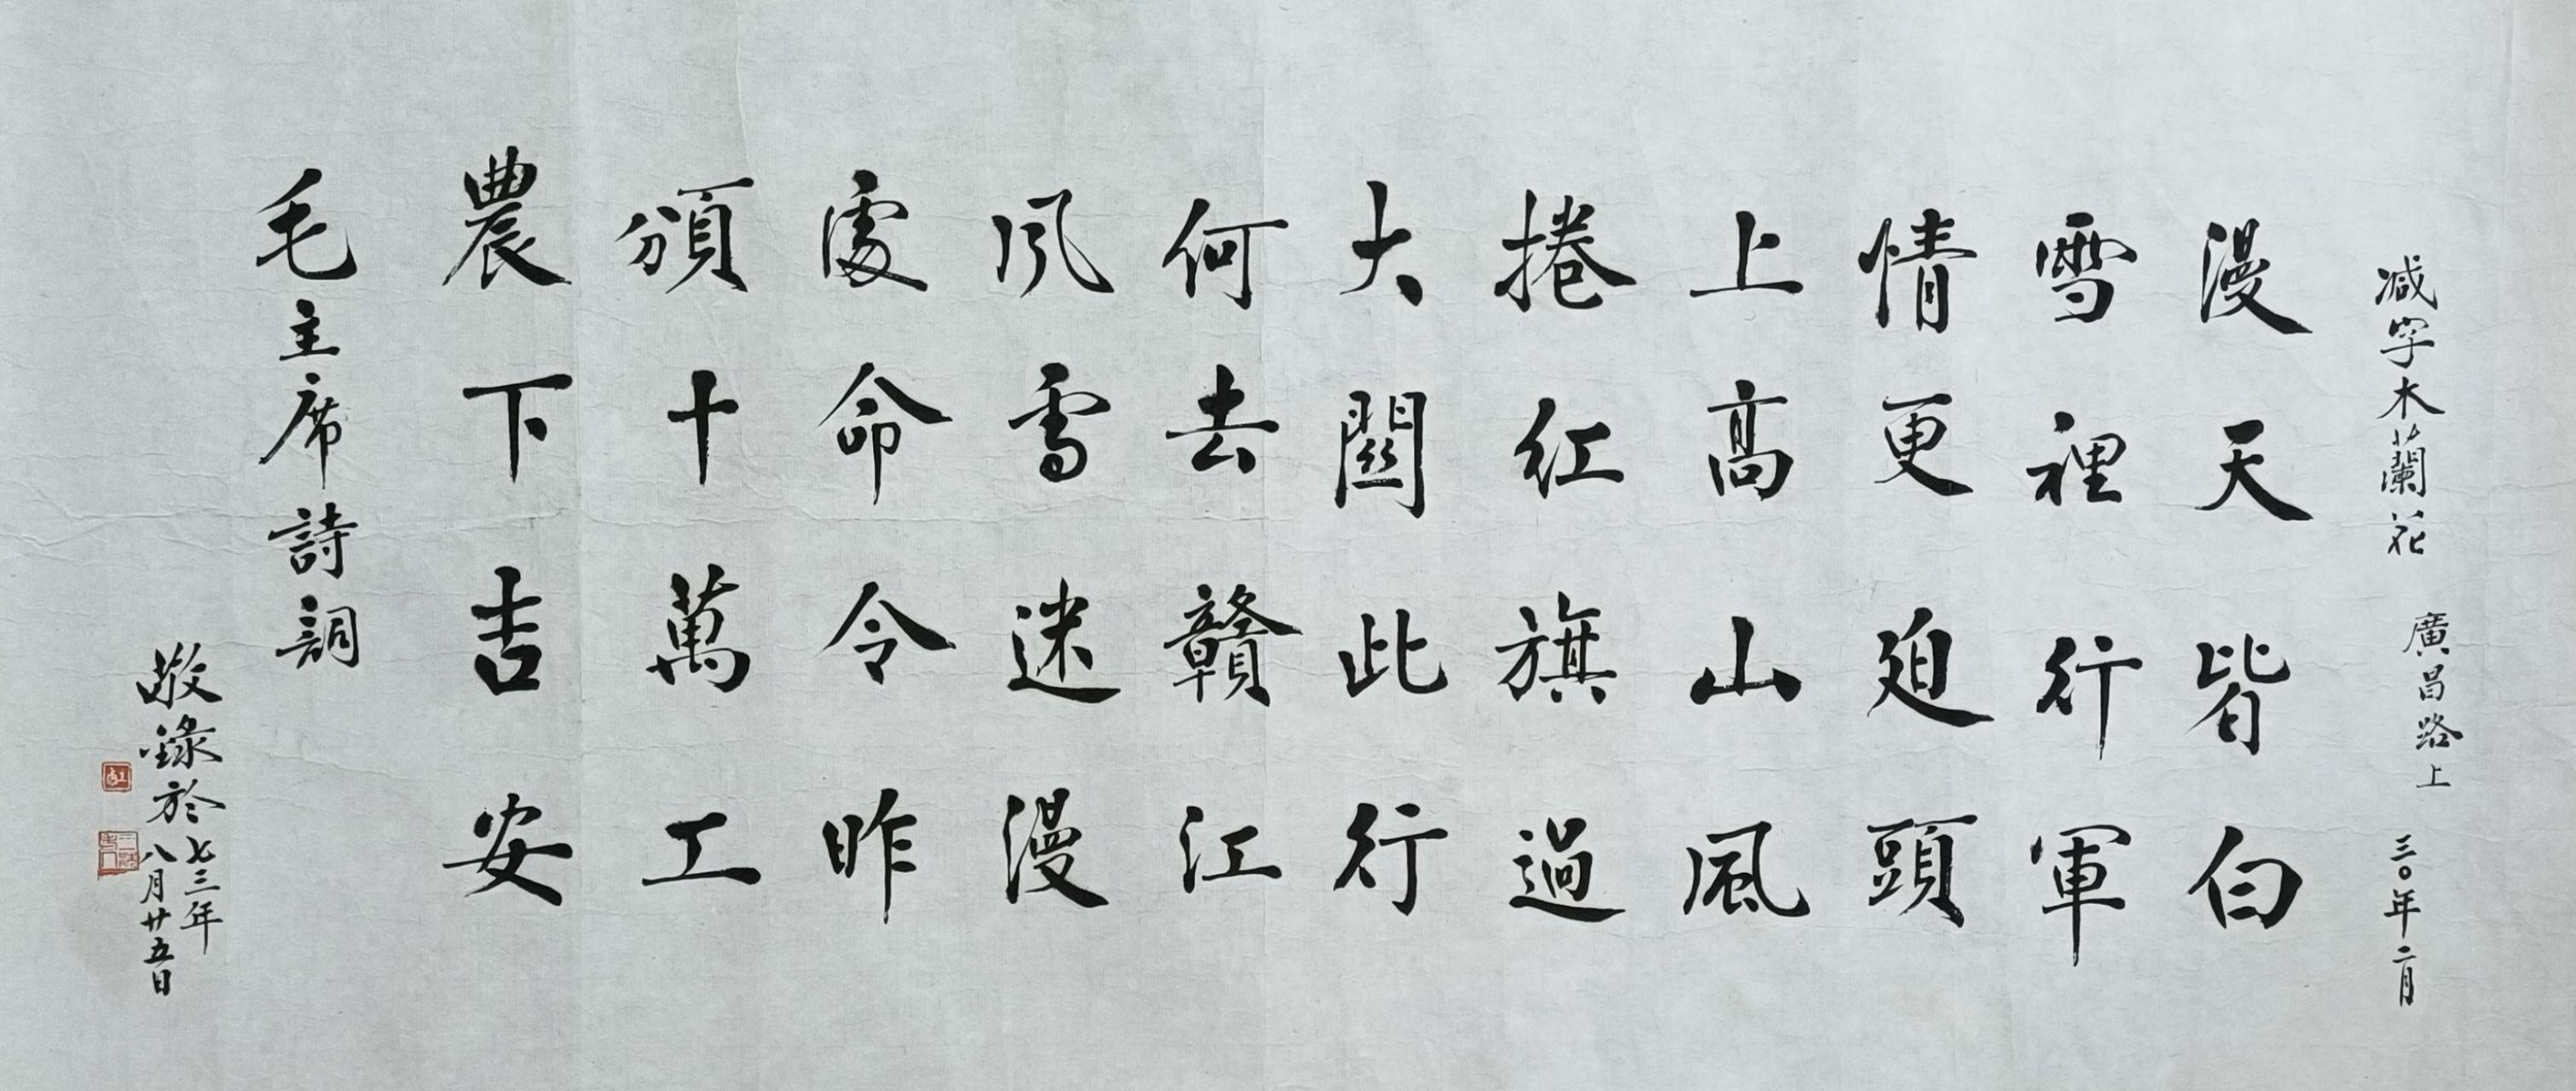 减字木蘭花 廣昌路上 三〇年二月
漫天皆白
雪裡行軍
情更迫頭
上高山風
捲紅旗過
大關此行
何去贛江
風雪迷漫
處命令昨
頒十萬工
農下吉安
毛主席詩詞
敬錄於七三年
八月廿五日